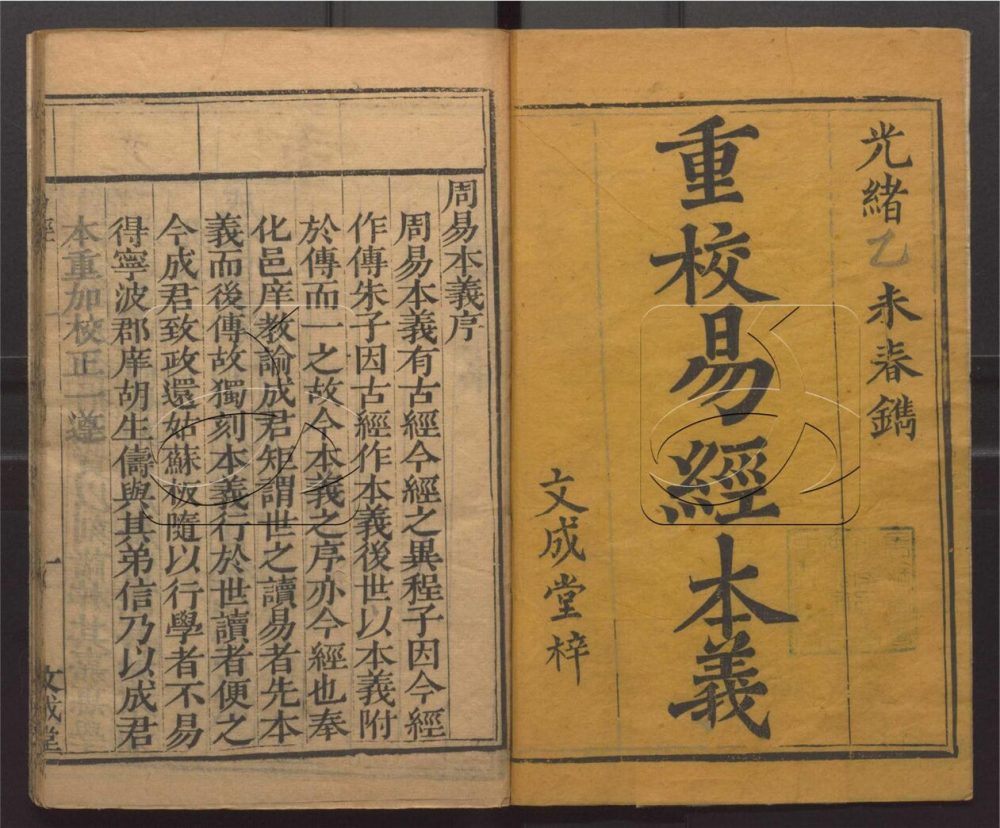 光緒乙未春鐫
重校易經本義
文成堂梓
周易本義序
周易本義有古經今經之異程子因今經
作傳朱子因古經作本義後世以本義附
於傳而一之故今本義之序亦今經也奉
化邑庠教諭成君矩謂世之讀易者先本
義而後傳故獨刻本義行於世讀者便之
今成君致政還姑蘇板隨以行學者不易
得寧波郡庠胡生儔與其弟信乃以成君
本重加校正一遵
經
文成堂